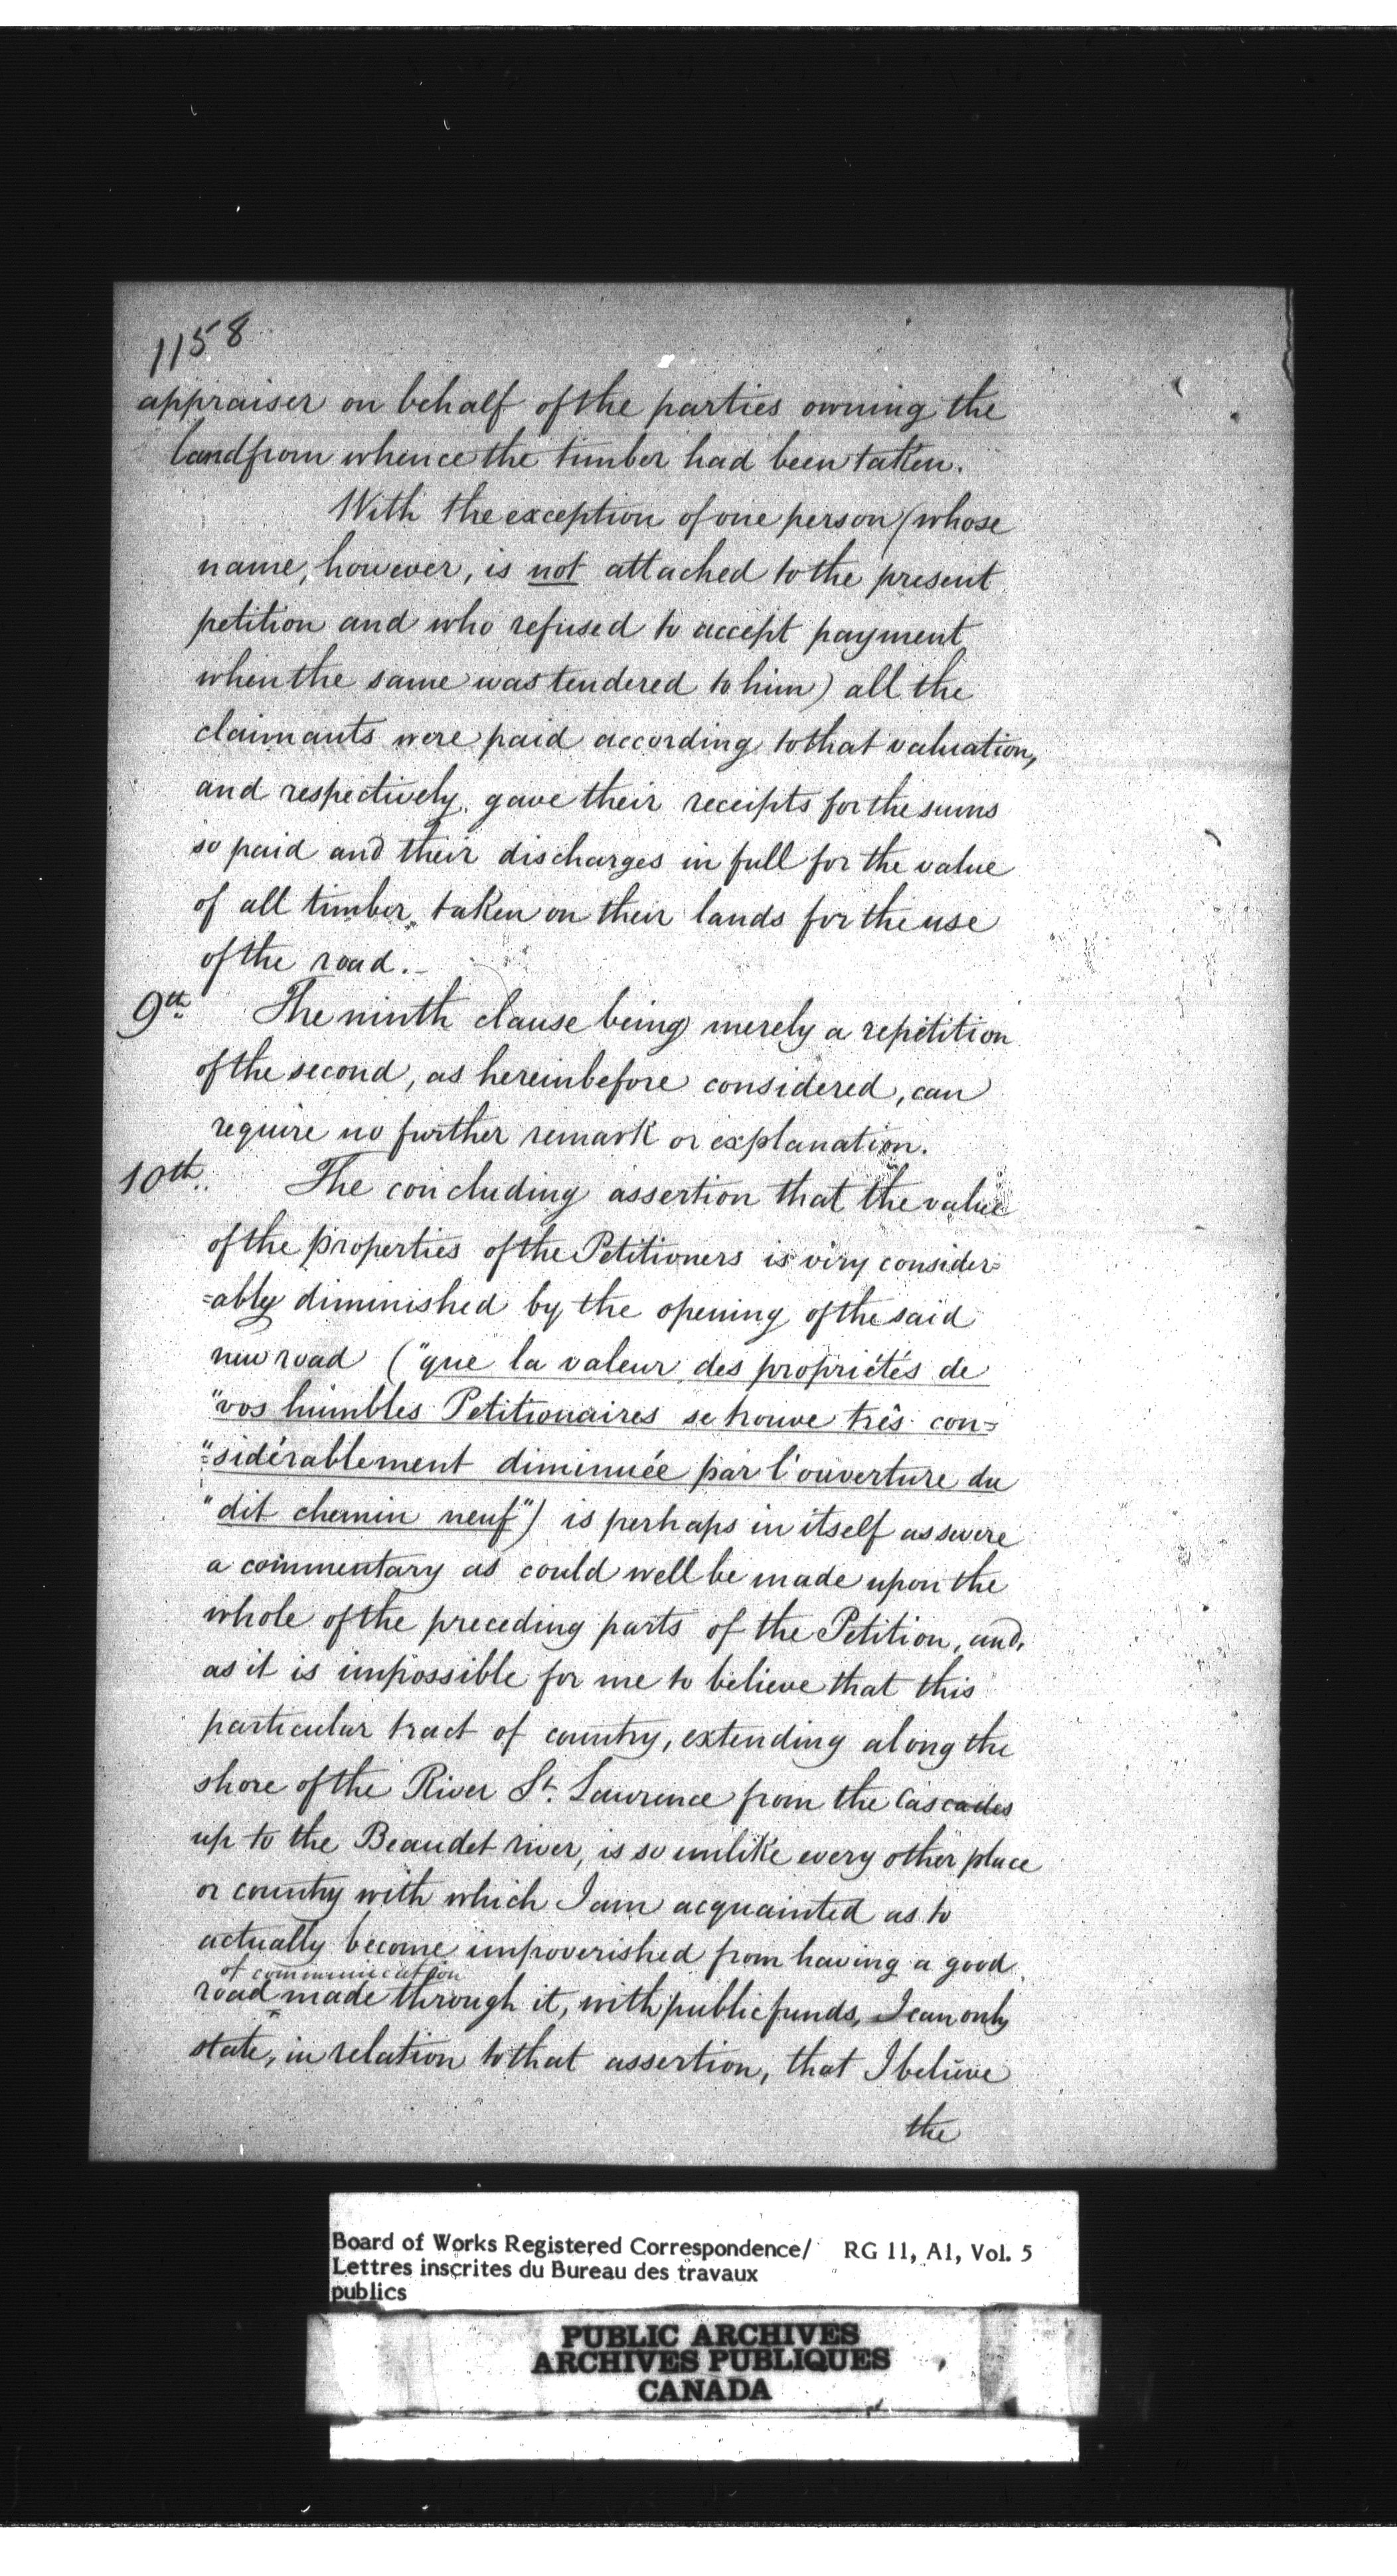 1158
appraiser on behalf of the parties owning the
land from whence the timber had been taken.
With the exception of one person (whose
name, however, is not attached to the present
petition and who refused to accept payment
when the same was tendered to him) all the
claimants were paid according to that valuation,
and respectively gave their receipts for the sums
so paid and their discharges in full for the value
of all timber taken on their lands for the use
of the road.
9th The ninth clause being merely a repetition
of the second, as hereinbefore considered, can
require no further remark or explanation.
10th. The concluding assertion that the value
of the properties of the Petitioners is very consider=
=ably diminished by the opening of the said
new road ("que la valeur des propriétés de
"vos humbles Petitionaires se trouve três con=
"=sidérablement diminuée par l'ouverture du
"dit chemin neuf") is perhaps in itself as severe
a commentary as could well be made upon the
whole of the preceding parts of the Petition, and,
as it is impossible for me to believe that this
particular tract of country, extending along the
shore of the River St. Lawrence from the Cascades
up to the Beaudet river, is so unlike every other place
or country with which I am acquainted as to
actually become impoverished from having a good
of communication
road made through it, with public funds, I can only
state, in relation to that assertion, that I believe
the
Board of Works Registered Correspondence/ RG 11, A1, Vol. 5
Lettres inscrites du Bureau des travaux
publics
PUBLIC ARCHIVES
ARCHIVES PUBLIQUES
CANADA